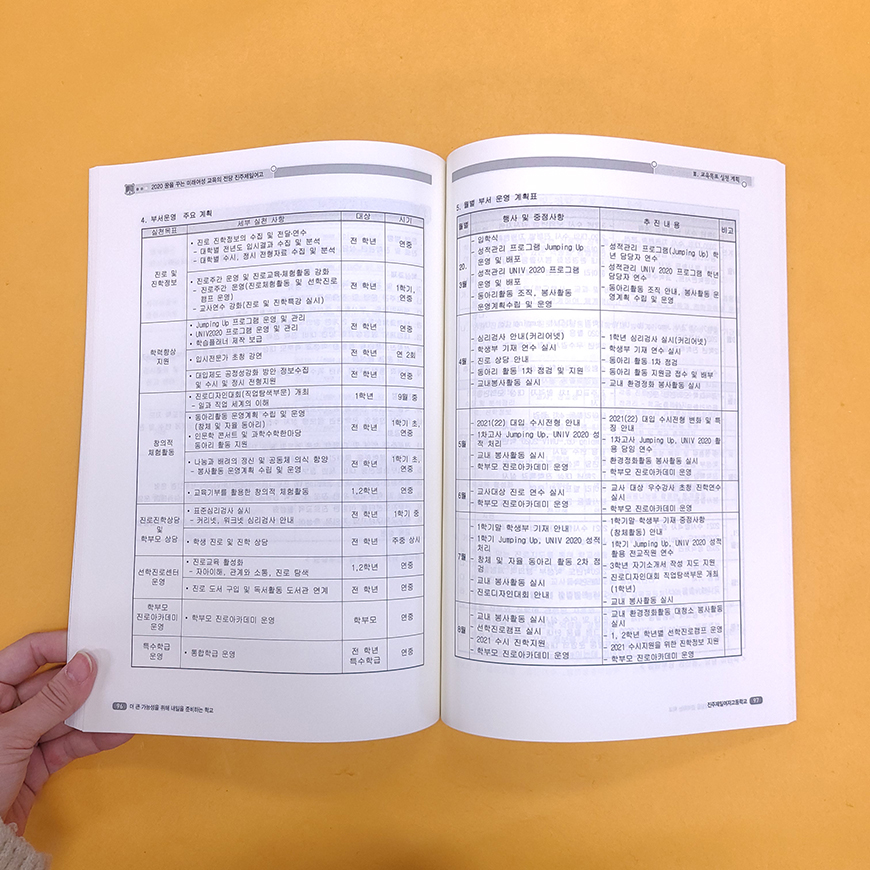 2020 꿈을 꾸는 미래여성 교육의 전당 진주제일여고
4. 부서운영 주요 계획
실천목표 세부 실천 사항 대상 시기
진로 및
진학정보
• 진로 진학정보의 수집 및 전달·연수
- 대학별 전년도 입시결과 수집 및 분석
- 대학별 수시, 정시 전형자료 수집 및 분석
전 학년 연중
• 진로주간 운영 및 진로교육·체험활동 강화
- 진로주간 운영(진로체험활동 및 선학진로
캠프 운영)
- 교사연수 강화(진로 및 진학특강 실시)
전 학년 1학기,
연중
학력향상
지원
• Jumping Up 프로그램 운영 및 관리
• UNIV2020 프로그램 운영 및 관리
• 학습플래너 제작 보급
전 학년 연중
• 입시전문가 초청 강연 전 학년 연 2회
• 대입제도 공정성강화 방안 정보수집
및 수시 및 정시 전형지원
전 학년 연중
창의적
체험활동
• 진로디자인대회(직업탐색부문) 개최
- 일과 직업 세계의 이해
1학년 9월 중
• 동아리활동 운영계획 수립 및 운영
(창체 및 자율 동아리)
• 인문학 콘서트 및 과학수학한마당
동아리 활동 지원
전 학년 1학기 초,
연중
• 나눔과 배려의 정신 및 공동체 의식 함양
- 봉사활동 운영계획 수립 및 운영
전 학년 1학기 초,
연중
• 교육기부를 활용한 창의적 체험활동 1,2학년 연중
진로진학상담
및
학부모 상담
• 표준심리검사 실시
- 커리넷, 워크넷 심리검사 안내
전 학년 1학기 중
• 학생 진로 및 진학 상담 전 학년 주중 상시
선학진로센터
운영
• 진로교육 활성화
- 자아이해, 관계와 소통, 진로 탐색
1,2학년 연중
• 진로 도서 구입 및 독서활동 도서관 연계 전 학년 연중
학부모
진로아카데미
운영
• 학부모 진로아카데미 운영 학부모 연중
특수학급
운영
• 통합학급 운영 전 학년
특수학급
연중
96 더 큰 가능성을 위해 내일을 준비하는 학교
Ⅲ. 교육목표 실현 계획
5. 월별 부서 운영 계획표
월별 행사 및 중점사항 추진내용 비고
20.
3월
- 입학식
- 성적관리 프로그램 Jumping Up
운영 및 배포
- 성적관리 UNIV 2020 프로그램
운영 및 배포
- 동아리활동 조직, 봉사활동
운영계획수립 및 운영
- 성적관리 프로그램(Jumping Up) 학
년 담당자 연수
- 성적관리 UNIV 2020 프로그램 학년
담당자 연수
- 동아리활동 조직 안내, 봉사활동 운
영계획 수립 및 운영
4월
- 심리검사 안내(커리어넷)
- 학생부 기재 연수 실시
- 진로 상담 안내
- 동아리 활동 1차 점검 및 지원
- 교내봉사활동 실시
- 1학년 심리검사 실시(커리어넷)
- 학생부 기재 연수 실시
- 동아리 활동 1차 점검
- 동아리 활동 지원금 접수 및 배부
- 교내 환경정화 봉사활동 실시
5월
- 2021(22) 대입 수시전형 안내
- 1차고사 Jumping Up, UNIV 2020 성
적 처리
- 교내 봉사활동 실시
- 학부모 진로아카데미 운영
- 2021(22) 대입 수시전형 변화 및 특
징 안내
- 1차고사 Jumping Up, UNIV 2020 활
용 담임 연수
- 환경정화활동 봉사활동 실시
- 학부모 진로아카데미 운영
6월
- 교사대상 진로 연수 실시
- 학부모 진로아카데미 운영
- 교사 대상 우수강사 초청 진학연수
실시
- 학부모 진로아카데미 운영
7월
- 1학기말 학생부 기재 안내
- 1학기 Jumping Up, UNIV 2020 성적
처리
- 창체 및 자율 동아리 활동 2차 점
검
- 교내 봉사활동 실시
- 진로디자인대회 안내
- 1학기말 학생부 기재 중점사항
(창체활동) 안내
- 1학기 Jumping Up, UNIV 2020 성적
활용 전교직원 연수
- 3학년 자기소개서 작성 지도 지원
- 진로디자인대회 직업탐색부문 개최
(1학년)
- 교내 봉사활동 실시
8월
- 교내 봉사활동 실시
- 선학진로캠프 실시
- 2021 수시 진학지원
- 학부모 진로아카데미 운영
- 교내 환경정화활동 대청소 봉사활동
실시
- 1, 2학년 학년별 선학진로캠프 운영
- 2021 수시지원을 위한 진학정보 지원
- 학부모 진로아카데미 운영
진주제일여자고등학교 97